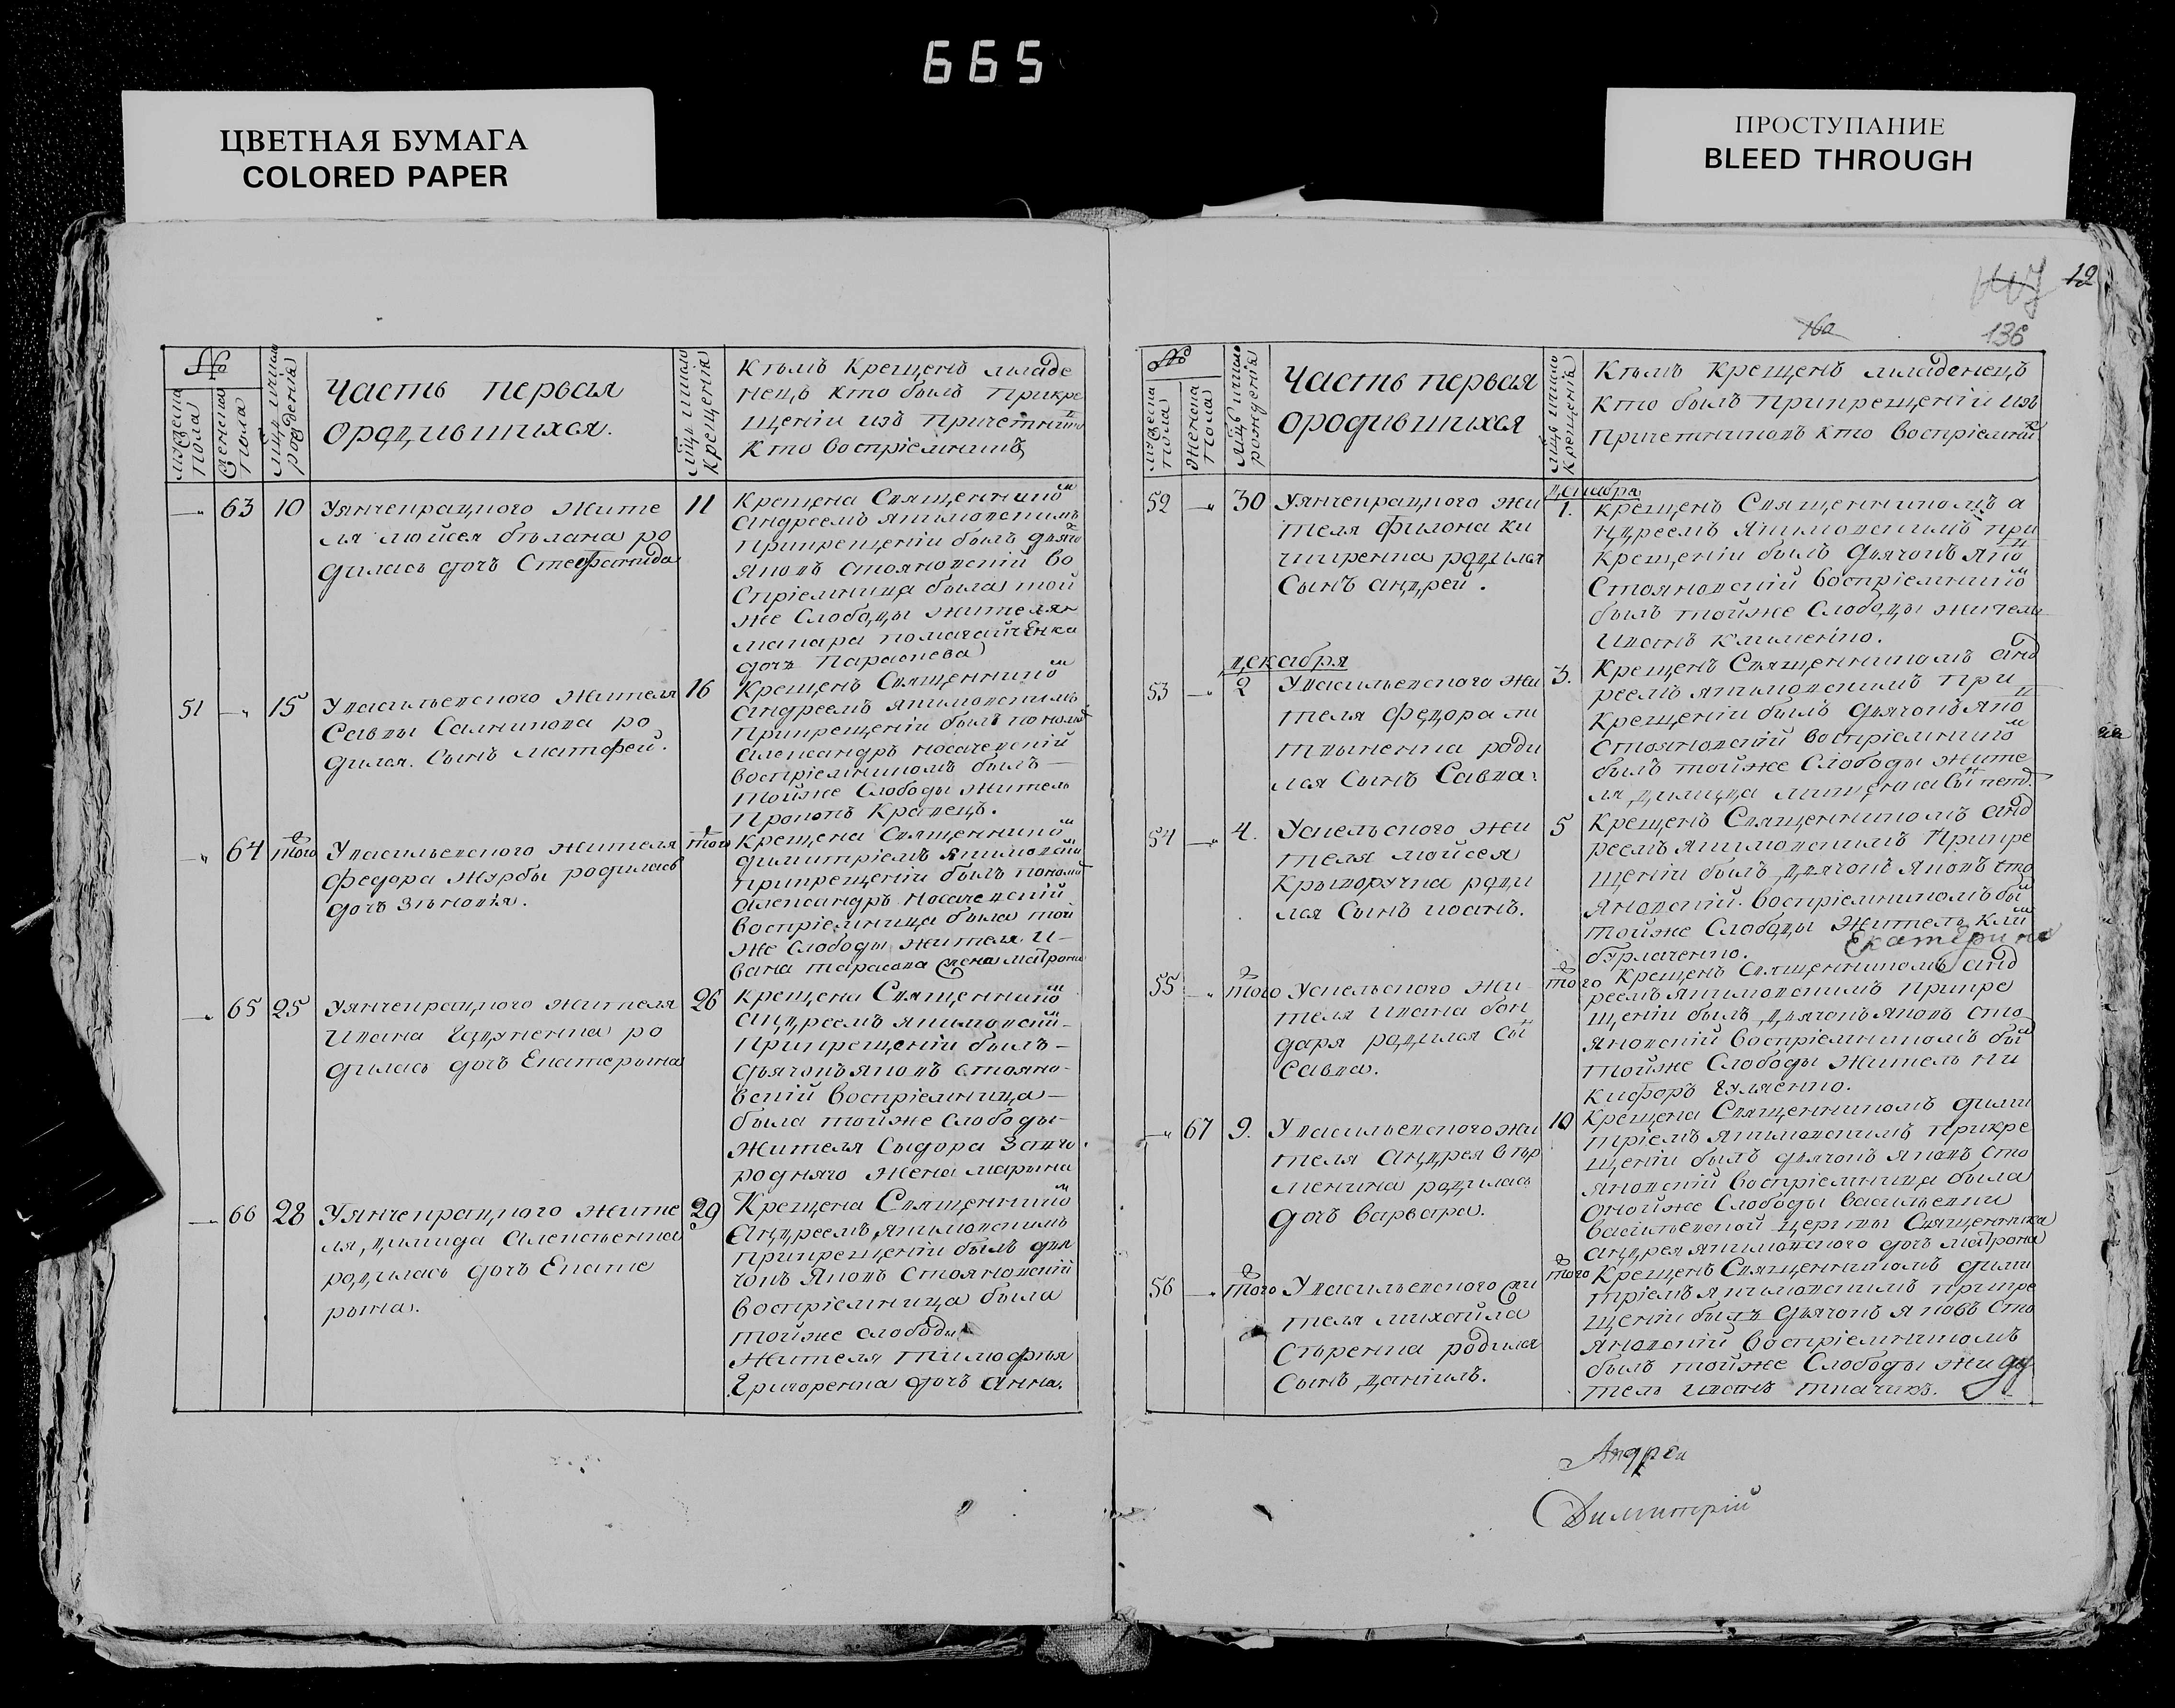 665
ЦВЕТНАЯ БУМАГА
COLORED PAPER
ПРОСТУПАНИЕ
BLEED THROUGH
12
160
136
№
мужеска пола
женска пола
рождения
Часть первая
ородившихся.
Крещения
Кѣмъ Крещенъ младе
нецъ кто былъ прикре
щении изъ причетник
Кто восприемникъ
63 10
Уянчекрацкого жите
ля мойсея бѣлана ро
дилась дочь Стефанида
11
Крещена Священнико
андреемъ якимовскимъ
прикрещении былъ дячо
яковъ стояновский во
сприемница была той
же Слободы жителя
макара
дочъ Параскева
51 15
Увасильевского жителя
Саввы Салникова ро
дился. Сынъ матфей.
16
Крещенъ Священнико
андреемъ якимовскимъ
прикрещении былъ поном
александръ носачевский
восприемникомъ былъ
тойже Слободы житель
Прокопъ Кравецъ.
64 того
Увасильевского жителя
федора журбы родилась
дочъ Зѣновия.
того
Крещена Священнико
димитриемъ якимовски
прикрещении былъ поном
александръ носачевский
восприемница была той
же Слободы жителя и
вана тарасова жена матрона
65 25
Уянчекрацкого жителя
Ивана ро
дилась дочъ Екатерына
26
Крещена Священнико
андреемъ якимовски
Прикрещении былъ
дьячокъ яковъ стояно
вский восприемница
была тойже Слободы
жителя Сыдора
жена марына
66 28
Уянчекрацкого жите
ля, демида Алексѣенка
родилась дочъ Екате
рына.
29
Крещена Священнико
Андреемъ якимовскимъ
прикрещении былъ дья
чокъ Яковъ Стояновский
восприемница была
тойже слободы
жителя тимофѣя
Григоренка дочъ анна.
№
мужеска пола
Женска пола
рождения
Часть первая
ородившихся
Крещения
Кѣмъ Крещенъ младенецъ
кто былъ прикрещении изъ
Причетниковъ кто восприемни
52 30
Уянчекрацкого жи
теля филона ки
родился
Сынъ андрей.
декабря
1.
Крещенъ Священникомъ а
ндреемъ якимовскимъ при
Крещении былъ дячокъ яко
Стояновский восприемнико
былъ тойже Слободы житель
Иванъ Клименко.
декабря
53 2
Увасильевского жи
теля федора ли
твиненка роди
лся Сынъ Савва.
3.
Крещенъ Священникомъ анд
реемъ якимовскимъ при
Крещении былъ дячокъ яко
стояновский восприемнико
былъ тойже Слободы жите
54 4.
теля мойсея
Криворучка роди
лся Сынъ иоанъ.
5
Крещенъ Священникомъ анд
реемъ якимовскимъ прикре
щении былъ, дячокъ яковъ сто
яновский. восприемникомъ бы
тойже Слободы житель
бурлаченко.
Екатерина
55 того
теля ивана бон
даря родился сы
Савва.
того
Крещенъ Священникомъ анд
реемъ якимовскимъ прикре
щении былъ, дячокъ яковъ сто
яновский восприемникомъ бы
тойже Слободы житель ни
кифоръ
67 9.
Увасильевского жи
теля Андрея
родилась
дочъ варвара.
10
Крещена Священникомъ дими
триемъ якимовскимъ прикре
щении былъ дячокъ яковъ сто
яновский восприемница была
онойже Слободы васильевки
васильевской церквы Священника
андрея якимовского дочъ матрона
56 того
Увасильевского жи
теля михайла
родился
Сынъ, данiилъ.
того
Крещенъ Священникомъ дими
триемъ якимовскимъ прикре
щении былъ дячокъ яковъ сто
яновский восприемникомъ
былъ тойже Слободы жи
тель иванъ ткачикъ.
Андреи
Димитрий